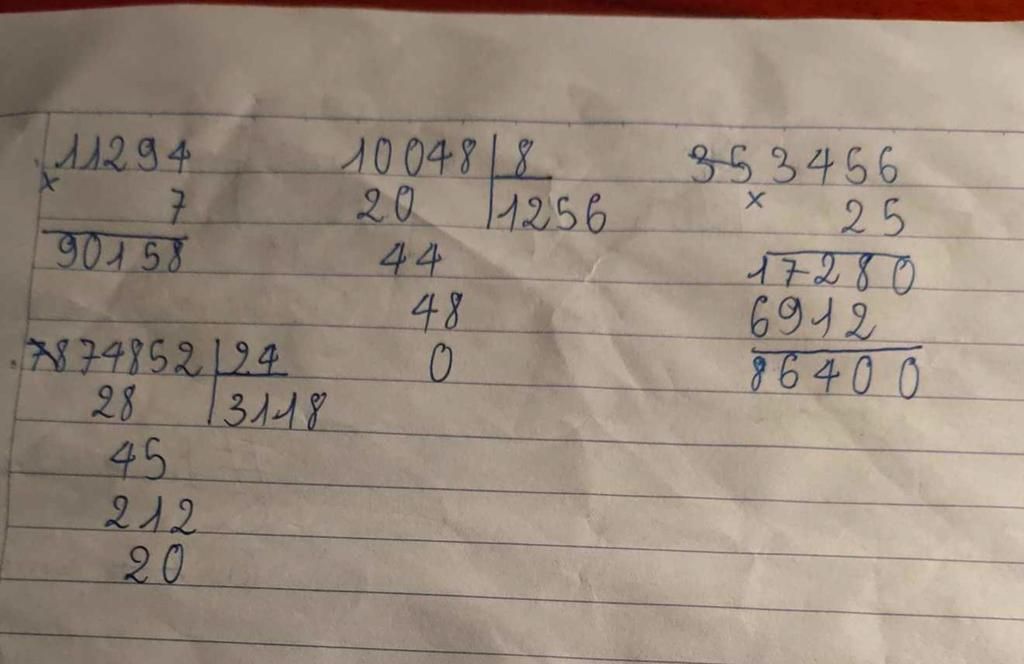 11294 10048 | 8 353456
x 7 20 | 1256 x 25
90158 44 17280
48 6912
7874852 | 24 0 86400
28 | 3118
45
212
20